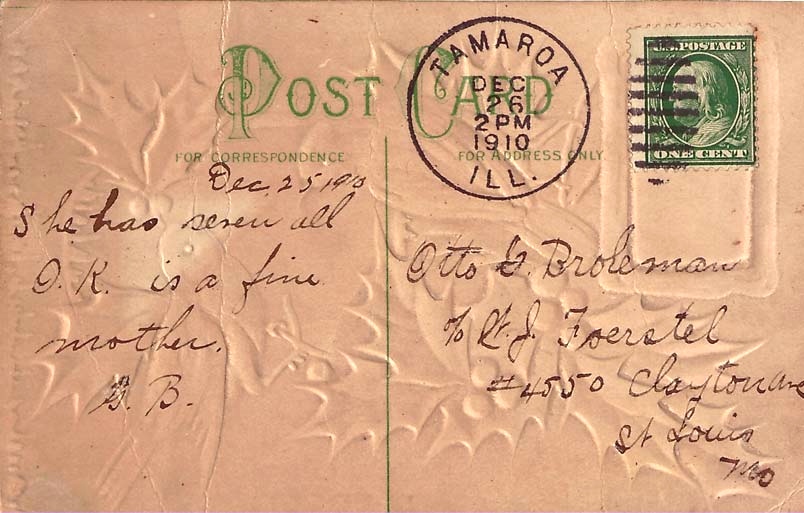 POST CARD
TAMAROA
DEC
26
2PM
1910
ILL.
U.S. POSTAGE
ONE CENT
FOR CORRESPONDENCE
FOR ADDRESS ONLY
Dec. 25 1910
She has seven all
O.K. is a fine
mother.
G. B.
Otto G. Broleman
c/o W. J. Foerstel
#4550 Clayton ave
St Louis
Mo